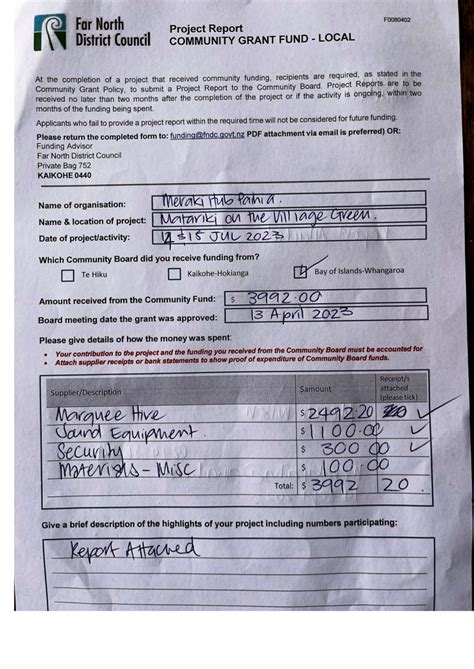 F0080402
Far North
District Council
Project Report
COMMUNITY GRANT FUND - LOCAL
At the completion of a project that received community funding, recipients are required, as stated in the
Community Grant Policy, to submit a Project Report to the Community Board. Project Reports are to be
received no later than two months after the completion of the project or if the activity is ongoing, within two
months of the funding being spent.
Applicants who fail to provide a project report within the required time will not be considered for future funding.
Please return the completed form to: funding@fndc.govt.nz PDF attachment via email is preferred) OR:
Funding Advisor
Far North District Council
Private Bag 752
KAIKOHE 0440
Name of organisation: Meraki Hub Paihia.
Name & location of project: Matariki on the Village Green.
Date of project/activity: 14 & 15 JUL 2023
Which Community Board did you receive funding from?
Te Hiku Kaikohe-Hokianga Bay of Islands-Whangaroa
Amount received from the Community Fund: $ 3992.00
Board meeting date the grant was approved: 13 April 2023
Please give details of how the money was spent:
• Your contribution to the project and the funding you received from the Community Board must be accounted for
• Attach supplier receipts or bank statements to show proof of expenditure of Community Board funds.
Supplier/Description $amount Receipt/s attached (please tick)
Marquee Hive $ 2492.20 ✓
Sound Equipment. $ 1100.00 ✓
Security $ 300 00 ✓
Materials - Misc $ 100.00
Total: $ 3992 20.
Give a brief description of the highlights of your project including numbers participating:
Report Attached